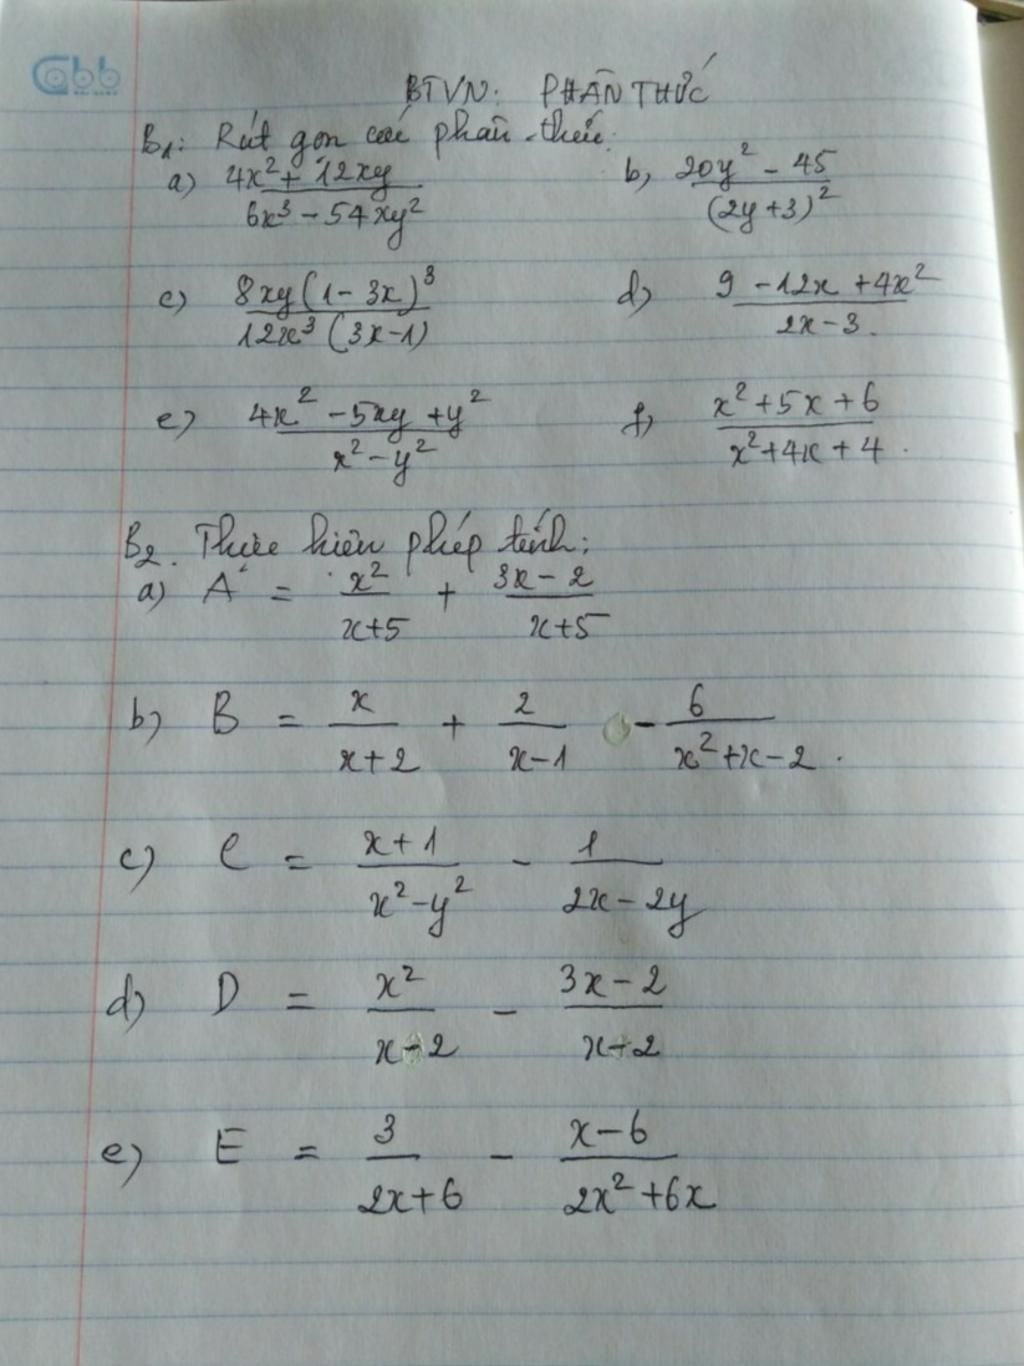 Cabb
BTVN: PHÂN THỨC
B1: Rút gọn các phân thức:
a) (4x² + 12xy)/(6x³ - 54xy²)    b, (20y² - 45)/(2y+3)²
c) (8xy(1-3x)³)/(12x³(3x-1))    d, (9 - 12x + 4x²)/(2x-3).
e) (4x² - 5xy + y²)/(x² - y²)    f, (x² + 5x + 6)/(x² + 4x + 4).
B2. Thực hiện phép tính:
a) A = x²/(x+5) + (3x-2)/(x+5)
b) B = x/(x+2) + 2/(x-1) - 6/(x²+x-2).
c) C = (x+1)/(x²-y²) - 1/(2x-2y)
d) D = x²/(x-2) - (3x-2)/(x-2)
e) E = 3/(2x+6) - (x-6)/(2x²+6x)